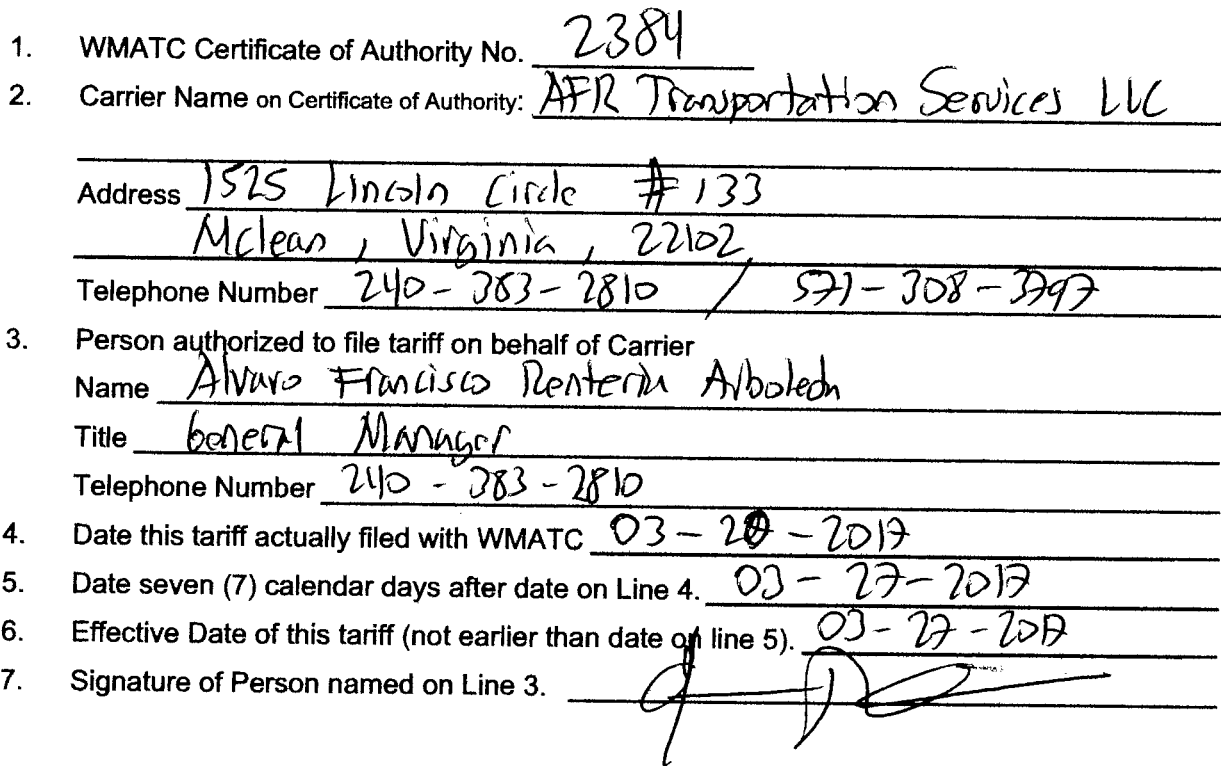 1. WMATC Certificate of Authority No. 2384
2. Carrier Name on Certificate of Authority: AFR Transportation Services LLC
Address 1525 Lincoln Circle # 133
Mclean, Virginia, 22102
Telephone Number 240-383-2810 / 571-308-3797
3. Person authorized to file tariff on behalf of Carrier
Name Alvaro Francisco Renteria Arboleda
Title General Manager
Telephone Number 240-383-2810
4. Date this tariff actually filed with WMATC 03-20-2017
5. Date seven (7) calendar days after date on Line 4. 03-27-2017
6. Effective Date of this tariff (not earlier than date on line 5). 03-27-2017
7. Signature of Person named on Line 3.